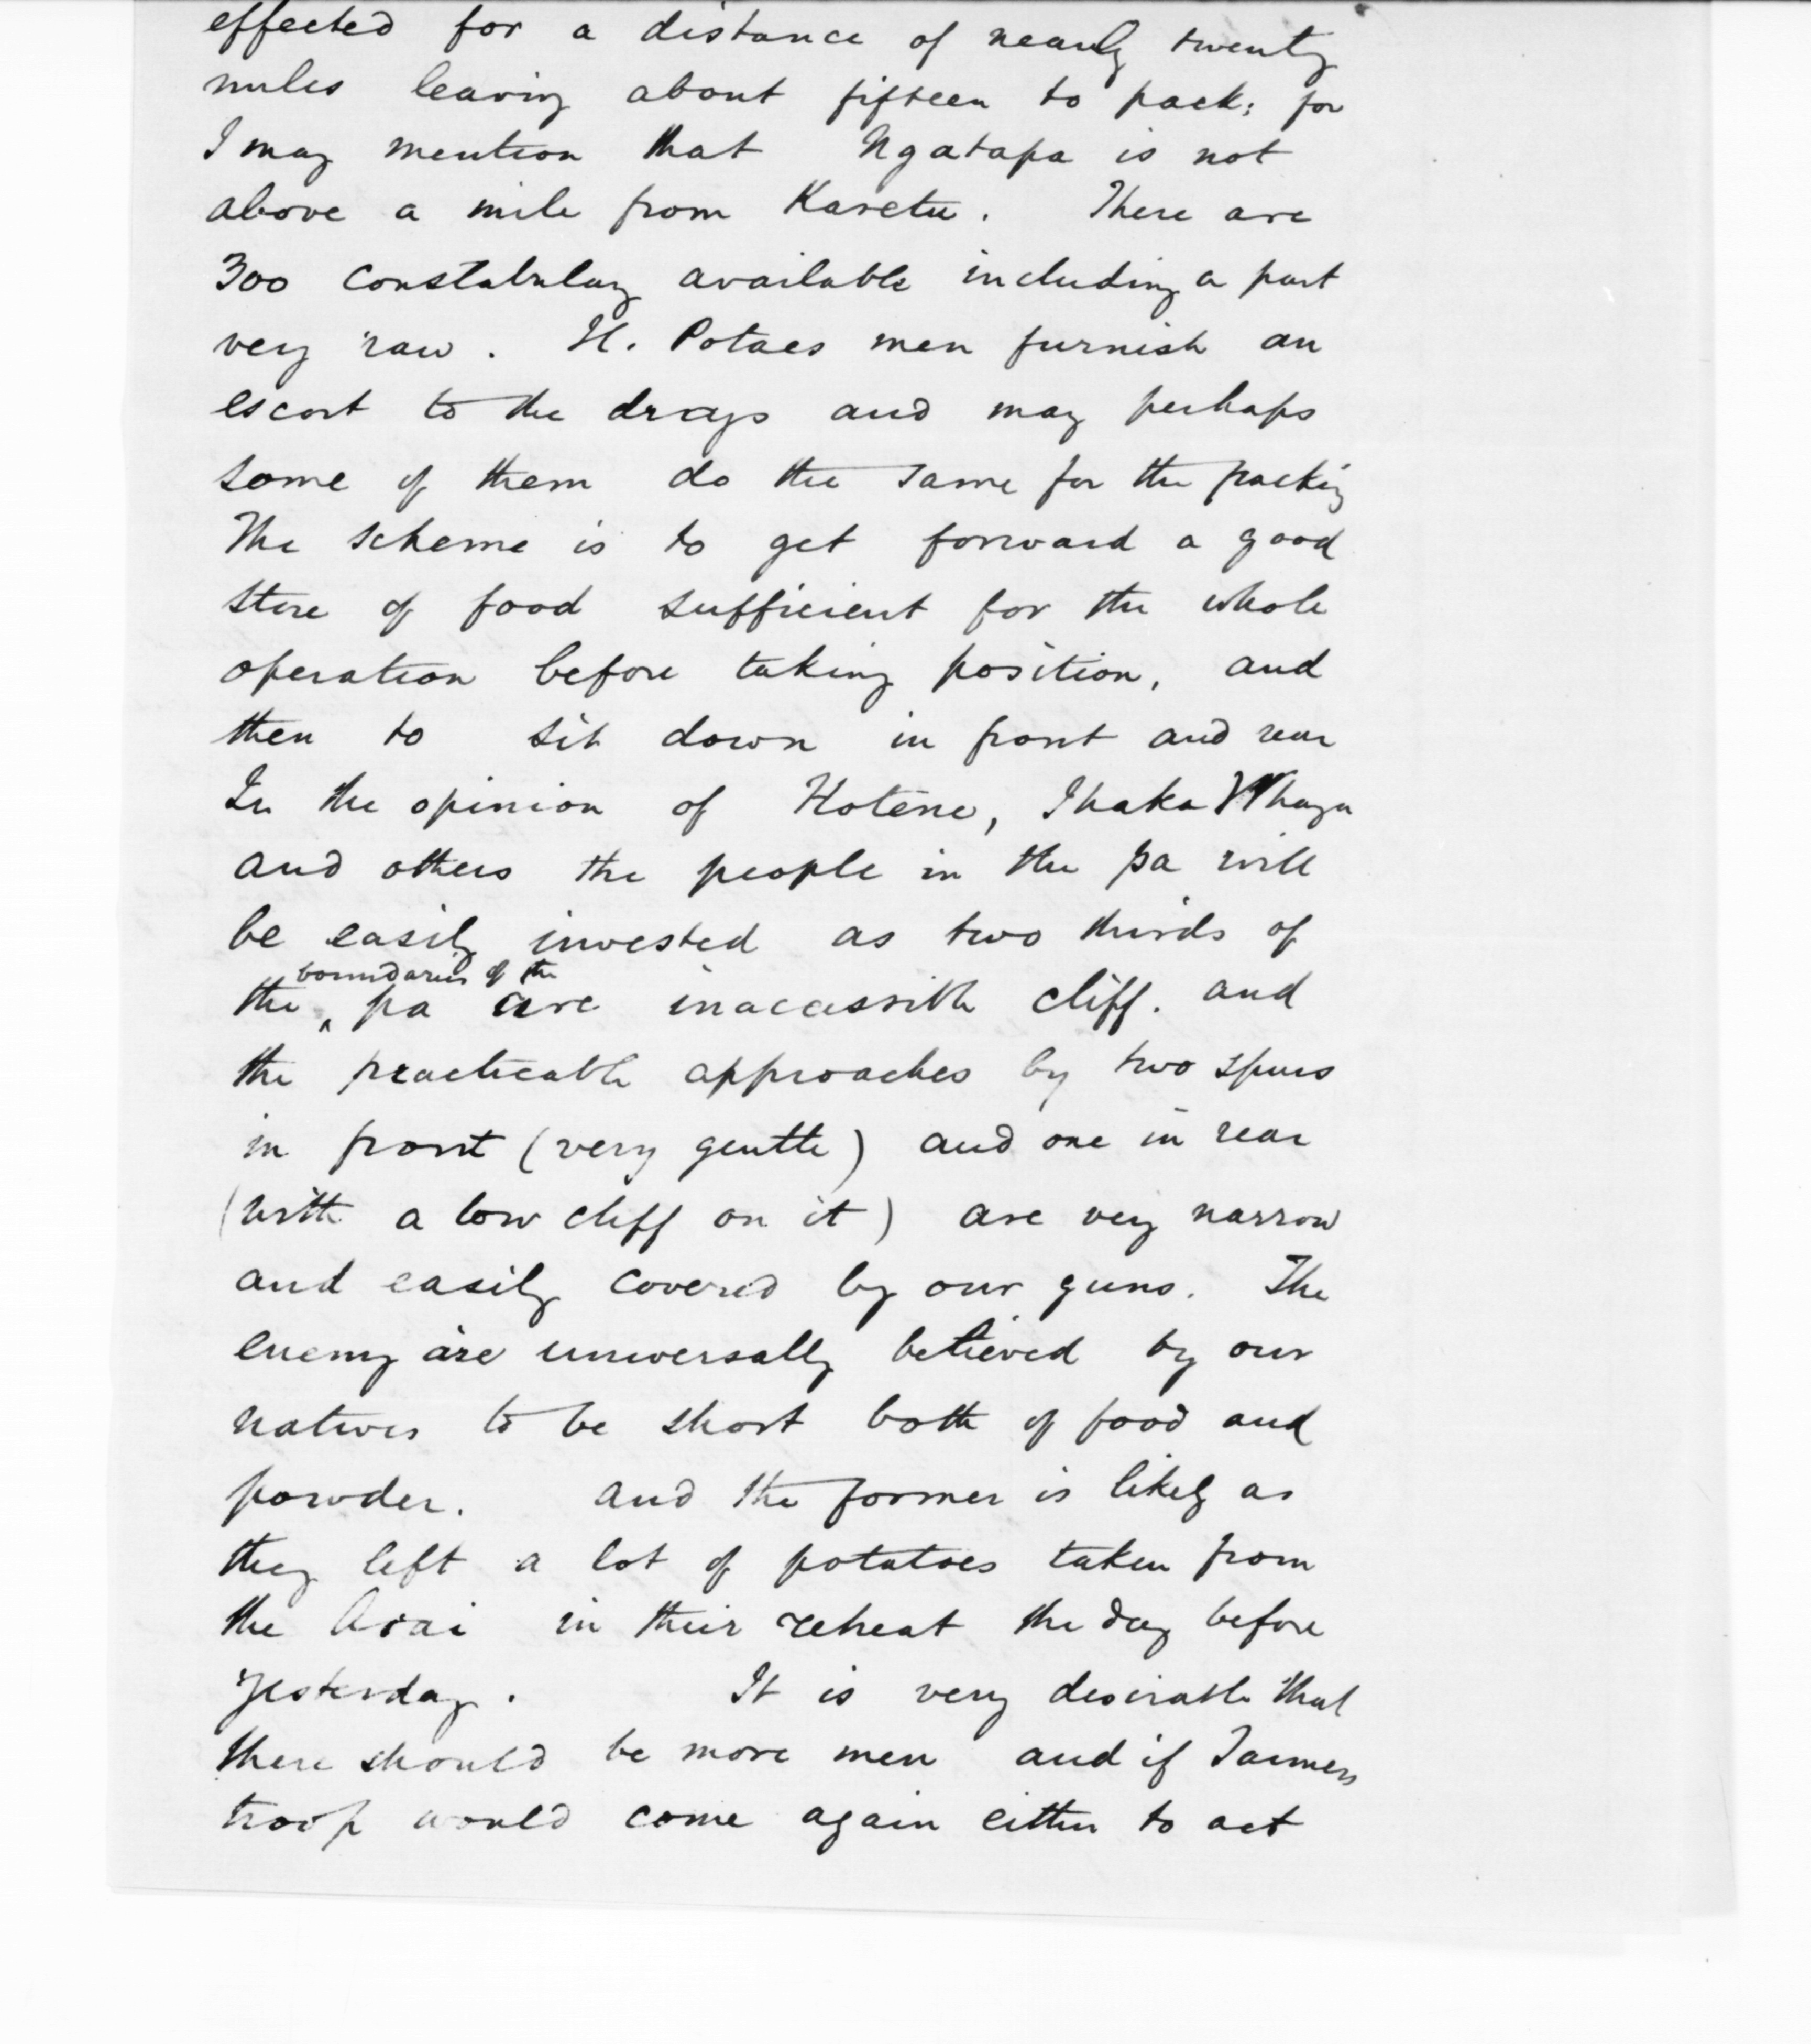 effected for a distance of nearly twenty
miles leaving about fifteen to pack; for
I may mention that Ngatapa is not
above a mile from Karetu. There are
300 Constabulary available including a part
very raw. H. Potaes men furnish an
escort to the drays and may perhaps
some of them do the same for the packing
The scheme is to get forward a good
store of food sufficient for the whole
operation before taking position, and
then to sit down in front and rear
In the opinion of Hotene, Ihaka
and others the people in the pa will
be easily invested as two thirds of
boundaries of the
the ‸ pa are inaccessible cliff. and
the practicable approaches by two spurs
in front (very gentle) and one in rear
(with a low cliff on it) are very narrow
and easily covered by our guns. The
enemy are universally believed by our
natives to be short both of food and
powder. and the former is likely as
they left a lot of potatoes taken from
the Arai in their retreat the day before
yesterday. It is very desirable that
there should be more men and if
troop would come again either to act